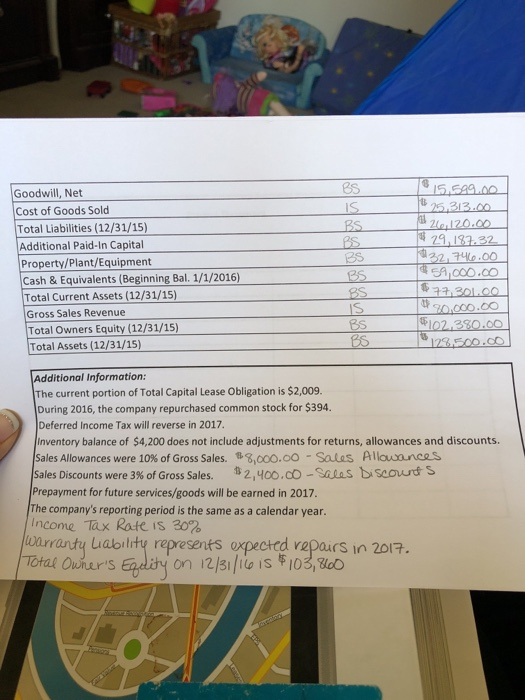 Goodwill, Net BS $15,599.00
Cost of Goods Sold IS $25,313.00
Total Liabilities (12/31/15) BS $26,120.00
Additional Paid-In Capital BS $29,187.32
Property/Plant/Equipment BS $32,746.00
Cash & Equivalents (Beginning Bal. 1/1/2016) BS $59,000.00
Total Current Assets (12/31/15) BS $77,301.00
Gross Sales Revenue IS $80,000.00
Total Owners Equity (12/31/15) BS $102,380.00
Total Assets (12/31/15) BS $128,500.00
Additional Information:
The current portion of Total Capital Lease Obligation is $2,009.
During 2016, the company repurchased common stock for $394.
Deferred Income Tax will reverse in 2017.
Inventory balance of $4,200 does not include adjustments for returns, allowances and discounts.
Sales Allowances were 10% of Gross Sales. $8,000.00 - Sales Allowances
Sales Discounts were 3% of Gross Sales. $2,400.00 - Sales Discounts
Prepayment for future services/goods will be earned in 2017.
The company's reporting period is the same as a calendar year.
Income Tax Rate is 30%
Warranty Liability represents expected repairs in 2017.
Total Owner's Eqdity on 12/31/16 is $103,860